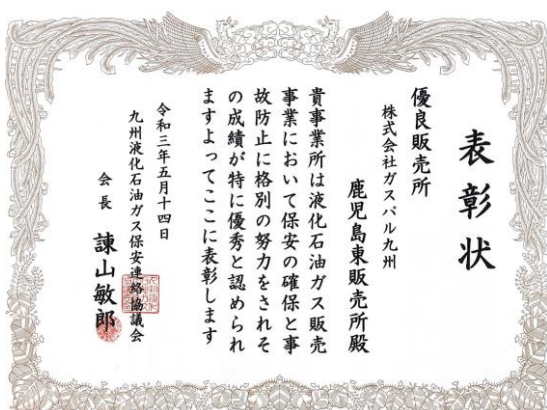 表彰状
優良販売所
株式会社ガスパル九州
鹿児島東販売所殿
貴事業所は液化石油ガス販売
事業において保安の確保と事
故防止に格別の努力をされそ
の成績が特に優秀と認められ
ますよってここに表彰します
令和三年五月十四日
九州液化石油ガス保安連絡協議会
会長 諌山敏郎